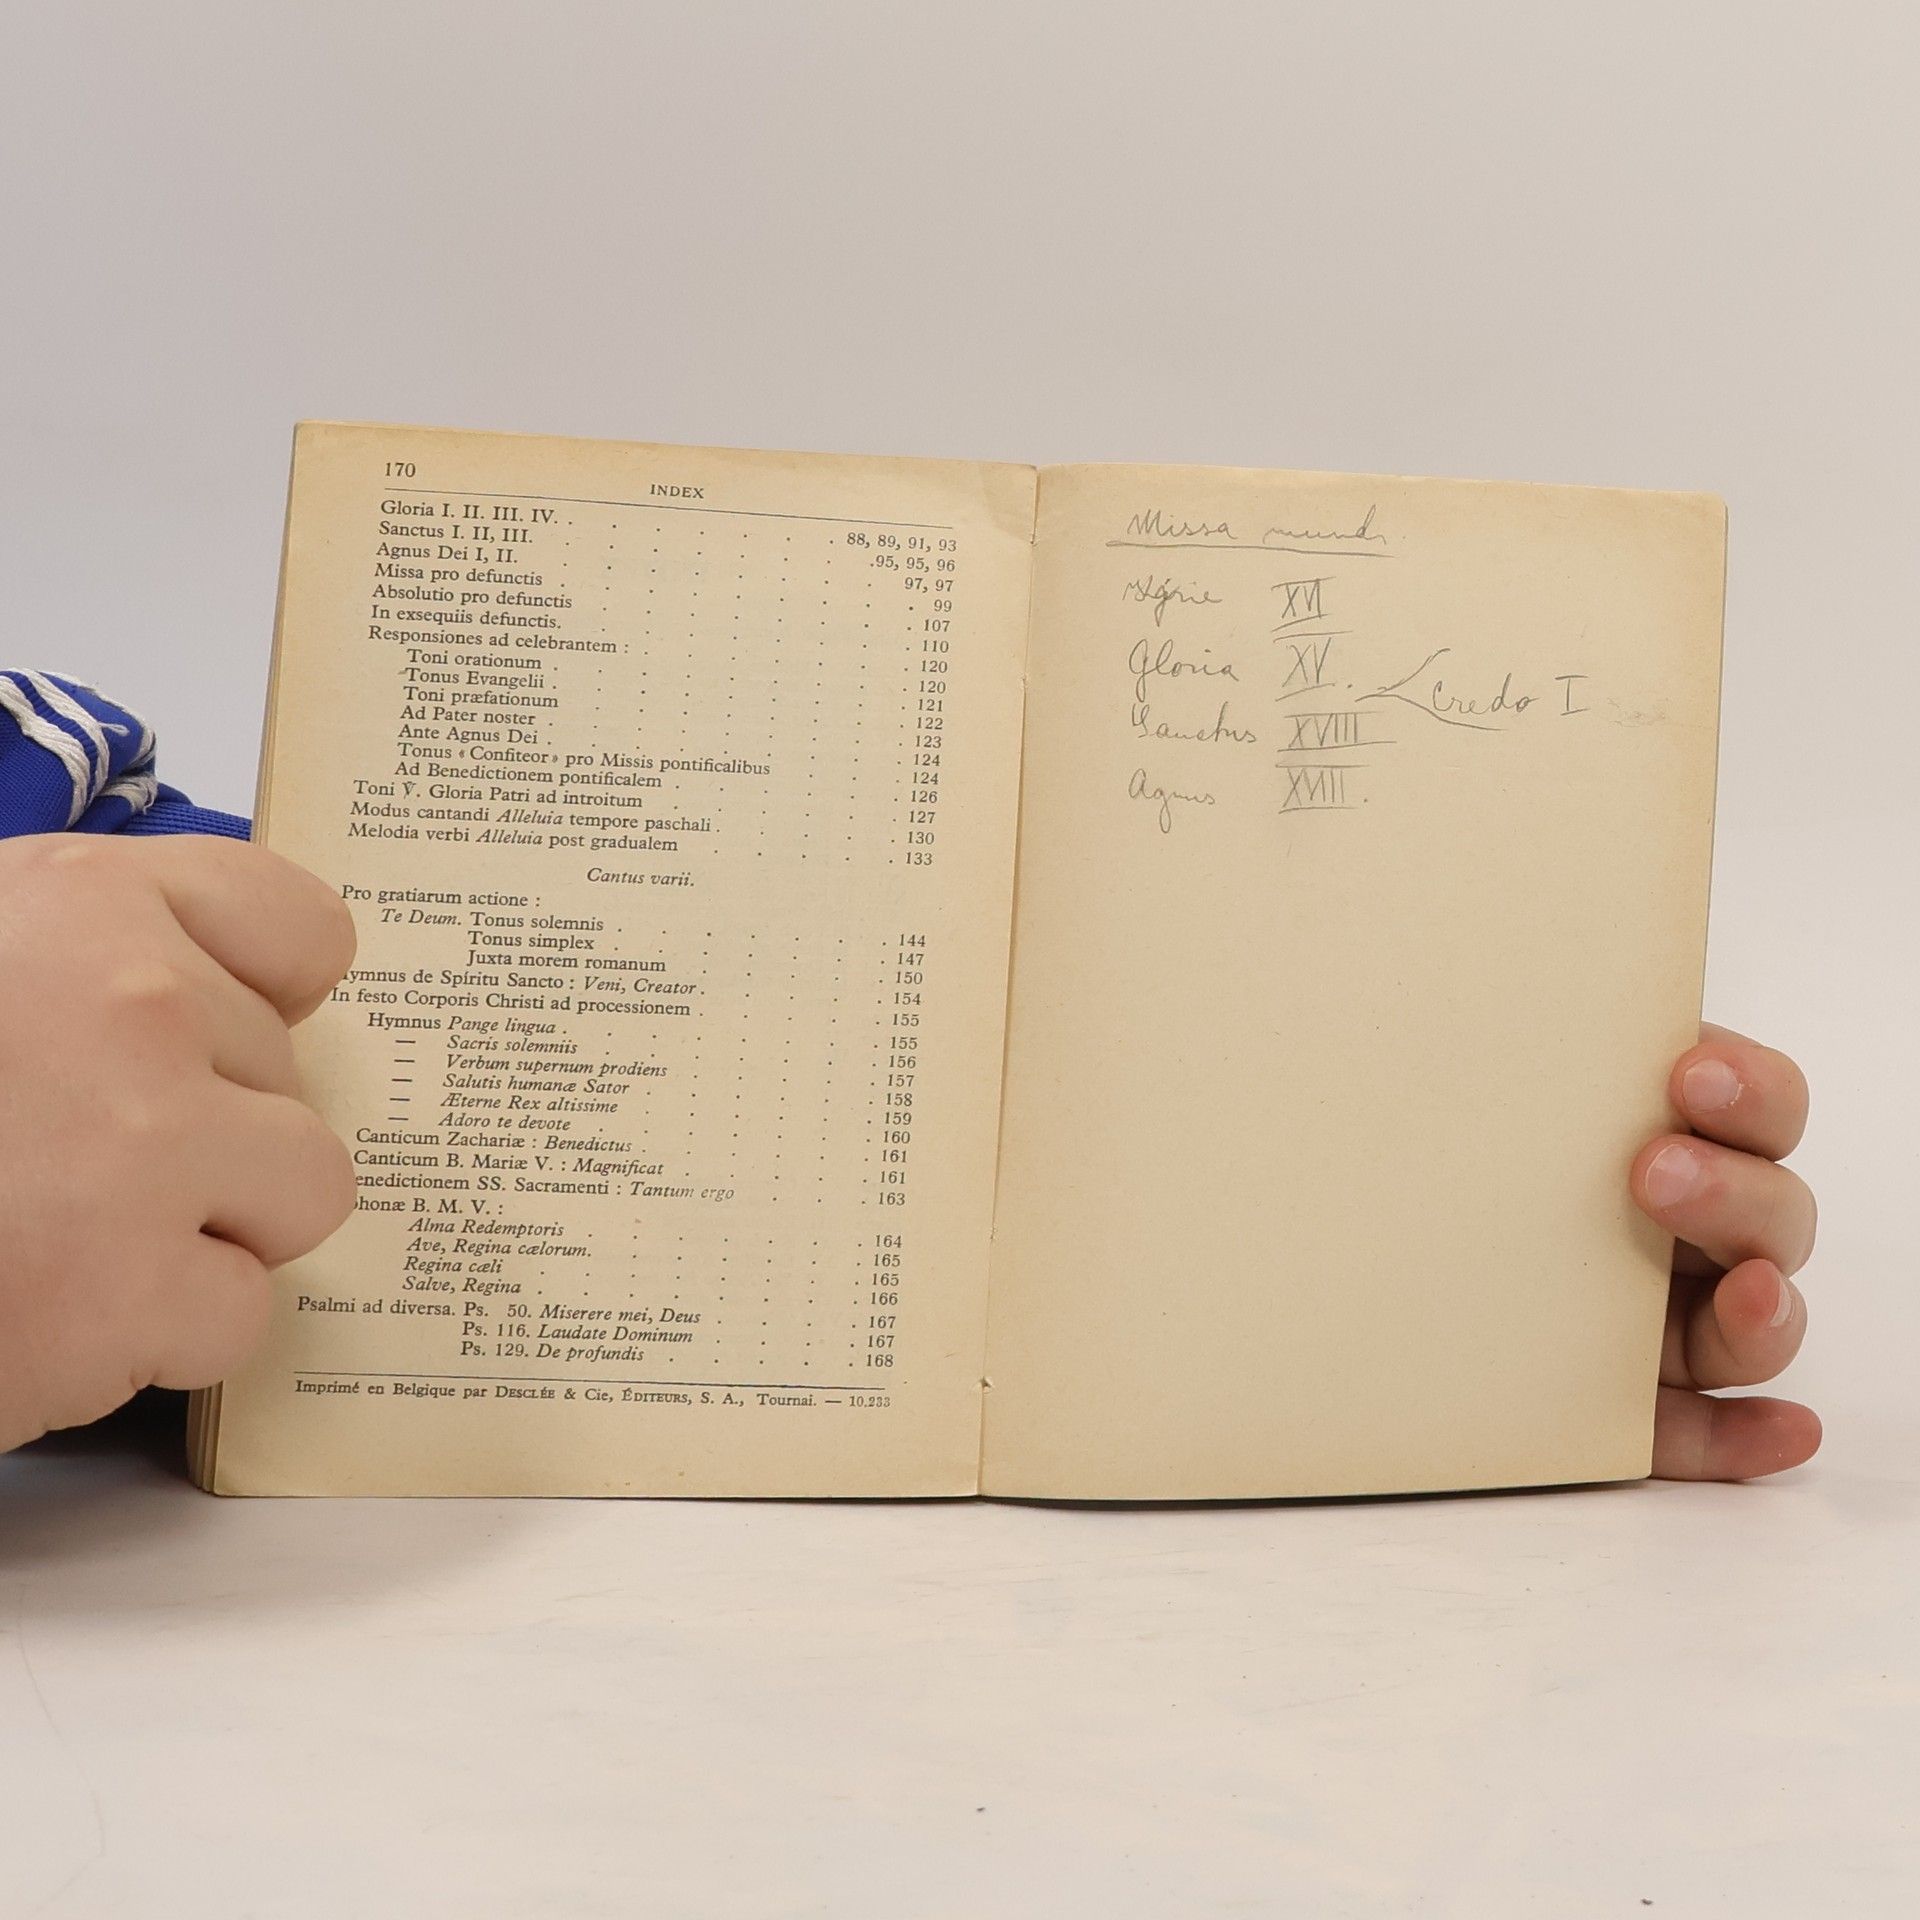 170
INDEX
Gloria I. II. III. IV. . . . . . . . 88, 89, 91, 93
Sanctus I. II, III. . . . . . . .95, 95, 96
Agnus Dei I, II. . . . . . . . 97, 97
Missa pro defunctis . . . . . . . . 99
Absolutio pro defunctis . . . . . . . 107
In exsequiis defunctis. . . . . . . . 110
Responsiones ad celebrantem : . . . . . . . 120
Toni orationum . . . . . . . 120
Tonus Evangelii . . . . . . . 121
Toni præfationum . . . . . . 122
Ad Pater noster . . . . . . . 123
Ante Agnus Dei . . . . . . . 124
Tonus « Confiteor » pro Missis pontificalibus . . . 124
Ad Benedictionem pontificalem . . . . 126
Toni ℣. Gloria Patri ad introitum . . . . 127
Modus cantandi Alleluia tempore paschali . . . . . 130
Melodia verbi Alleluia post gradualem . . . . . 133
Cantus varii.
Pro gratiarum actione :
Te Deum. Tonus solemnis . . . . . . . 144
Tonus simplex . . . . . . . 147
Juxta morem romanum . . . . . 150
ymnus de Spíritu Sancto : Veni, Creator . . . . . 154
In festo Corporis Christi ad processionem . . . . . 155
Hymnus Pange lingua . . . . . . . . 155
— Sacris solemniis . . . . . . . 156
— Verbum supernum prodiens . . . . . 157
— Salutis humanæ Sator . . . . . . 158
— Æterne Rex altissime . . . . . . 159
— Adoro te devote . . . . . . . 160
Canticum Zachariæ : Benedictus . . . . . . 161
Canticum B. Mariæ V. : Magnificat . . . . . 161
enedictionem SS. Sacramenti : Tantum ergo . . . 163
phonæ B. M. V. :
Alma Redemptoris . . . . . . . 164
Ave, Regina cælorum. . . . . . . 165
Regina cæli . . . . . . . . 165
Salve, Regina . . . . . . . . 166
Psalmi ad diversa. Ps. 50. Miserere mei, Deus . . . . 167
Ps. 116. Laudate Dominum . . . . 167
Ps. 129. De profundis . . . . . 168
Imprimé en Belgique par DESCLÉE & Cie, ÉDITEURS, S. A., Tournai. — 10.233
Missa mundi
Kyrie XVI
Gloria XV. Credo I
Sanctus XVIII
Agnus XVIII.